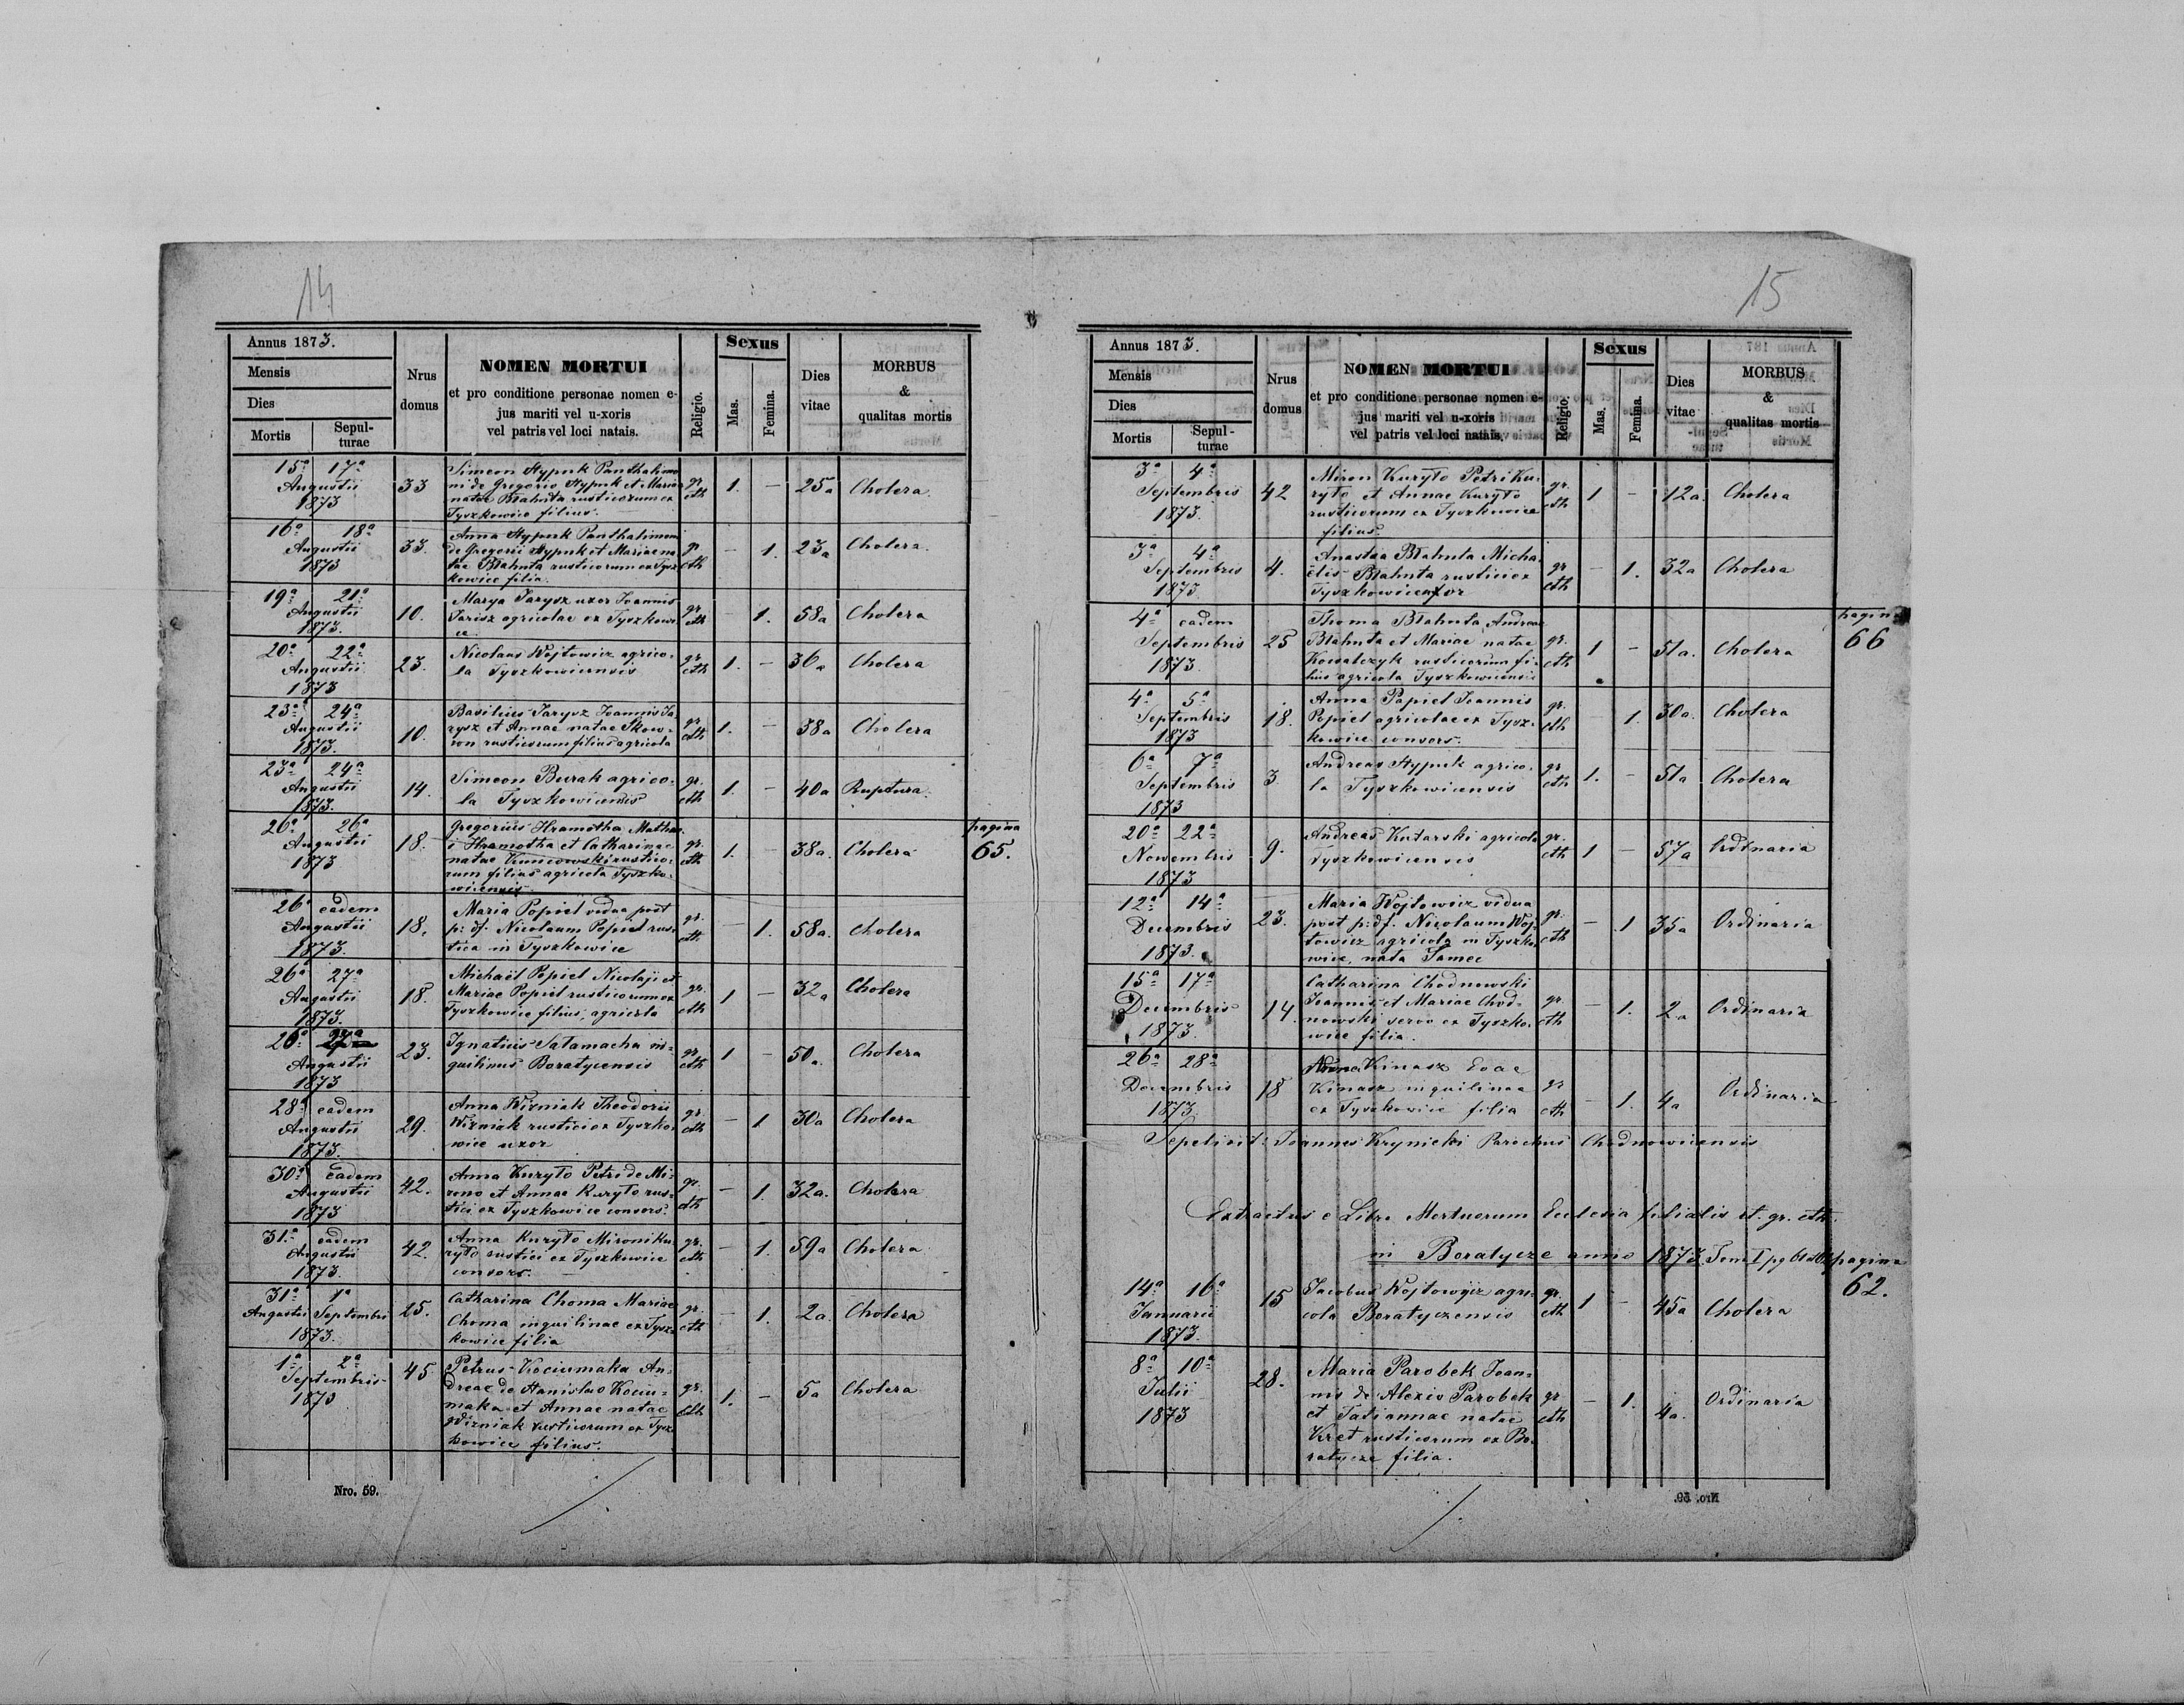 14
Annus 1873.
Mensis
Dies
Mortis
Sepul-
turae
Nrus
domus
NOMEN MORTUI
et pro conditione personae nomen e-
jus mariti vel u-xoris
vel patris vel loci natais.
Religio.
Sexus
Mas.
Femina.
Dies
vitae
MORBUS
&
qualitas mortis
15a 17a
Augustii
1873
33
Simeon Hypnk Panthalimo
ni de Gregorio Hypnk et Mariae
natae Błahuta rusticorum ex
Tyszkowice filius.
gr. cth
1. — 25a Cholera.
16a 18a
Augustii
1873
33.
Anna Hypnk Panthalimoni
de Gregorii Hypnk et Mariae na
tae Błahuta rusticorum ex Tysz
kowice filia.
gr cth
— 1. 23a Cholera.
19a 21a
Augustii
1873.
10.
Marya Jarysz uxor Joannis
Jarisz agricolae ex Tyszkowi
ce.
gr. cth
— 1. 58a Cholera
20a 22a
Augustii
1873
23.
Nicolaus Wojtowicz agrico-
la Tyszkowicensis
gr. cth
1. — 36a Cholera
23a 24a
Augustii
1873.
10.
Basilius Jarysz Joannis Ja
rysz et Annae natae Skow-
ron rusticorum filius agricola
gr. cth
1. — 38a Cholera
23a 24a
Augustii
1873.
14.
Simeon Burak agrico-
la Tyszkowicensis
gr. cth
1. — 40a Ruptura.
26a 26a
Augustii
1873
18.
Gregorius Hramotha Mathae
i Hramotha et Catharinae
natae Kuncowski rustico-
rum filius agricola Tyszko-
wicensis
gr. cth
1. — 38a. Cholera
pagina
65.
26a eadem
Augustii
1873.
18.
Maria Popiel vidua post
p: df. Nicolaum Popiel rus-
tica in Tyszkowice
gr. cth
— 1. 58a. Cholera
26a 27a
Augustii
1873.
18.
Michaël Popiel Nicolaji et
Mariae Popiel rusticorum ex
Tyszkowice filius, agricola
gr. cth
1 — 32a Cholera
26a 27a
Augustii
1873
23.
Ignatius Satamacha in-
quilinus Boratycensis
gr. cth
1 — 50a. Cholera
28a eadem
Augustii
1873.
29.
Anna Wizniak Theodorii
Wizniak rustici ex Tyszko-
wice uxor
gr. cth
— 1 30a Cholera
30a Eadem
Augustii
1873
42.
Anna Kuryło Petri de Mi-
rono et Annae Kuryło rus-
tici ex Tyszkowice consors.
gr. cth
— 1. 32a. Cholera
31a eadem
Augustii
1873.
42.
Anna Kuryło Mironi Ku
ryło rustici ex Tyszkowice
consors.
gr. cth
— 1. 59a Cholera
31a 1a
Augustii Septembri
1873.
25.
Catharina Choma Mariae
Choma inquilinae ex Tysz-
kowice filia
gr. cth
— 1. 2a. Cholera
1a 2a
Septembris
1873
45
Petrus Kociumaka An-
dreae de Stanislao Kociu-
maka et Annae natae
Wizniak rusticorum ex Tysz
kowice filius.
gr. cth
1. — 5a Cholera
Nro. 59.
15
Annus 1873.
Mensis
Dies
Mortis
Sepul-
turae
Nrus
domus
NOMEN MORTUI
et pro conditione personae nomen e-
jus mariti vel u-xoris
vel patris vel loci natais.
Religio.
Sexus
Mas.
Femina.
Dies
vitae
MORBUS
&
qualitas mortis
3a 4a
Septembris
1873.
42
Miron Kuryło Petri Ku-
ryło et Annae Kuryło
rusticorum ex Tyszkowice
filius.
gr. cth
1 — 12a. Cholera
3a 4a
Septembris
1873.
4.
Anastaa Błahuta Micha
ëlis Błahuta rustici ex
Tyszkowice uxor
gr cth
— 1. 32a Cholera
4a eadem
Septembris
1873
25
Thoma Błahuta Andreae
Błahuta et Mariae natae
Kowalczyk rusticorum fi-
lius agricola Tyszkowicensis
gr. cth
1 — 51a. Cholera
pagina
66
4a 5a
Septembris
1873
18.
Anna Popiel Joannis
Popiel agricolae ex Tysz-
kowice consors.
gr. cth
— 1. 30a. Cholera
6a 7a
Septembris
1873
3
Andreas Hypnik agrico-
la Tyszkowicensis
gr cth
1. — 51a Cholera
20a 22a
Nowembris
1873
9.
Andreas Kutarski agricola
Tyszkowicensis
gr. cth
1 — 57a Ordinaria
12a 14a
Decembris
1873.
23.
Maria Wojtowicz vidua
post p: df. Nicolaum Woj-
towicz agricola in Tyszko
wice, nata Jamec
gr. cth
— 1 35a Ordinaria
15a 17a
Decembris
1873.
14.
Catharina Chodnowski
Joannis et Mariae Chod-
nowski servo ex Tyszko-
wice filia.
gr. cth
— 1. 2a Ordinaria
26a 28a
Decembris
1873.
18
Anna Kinasz Evae
Kinasz inquilinae
ex Tyszkowice filia
gr cth
— 1. 4a Ordinaria
Sepelivit: Joannes Krynicki Parochus Chodnowicensis
Extractus e Libro Mortuorum Ecclesia filialis rt. gr. cth.
in Boratycze anno 1873. Tom I pg
pagina
62.
14a 16a
Januarii
1873.
15
Jacobus Wojtowicz agri-
cola Boratyczensis
gr. cth
1 — 45a Cholera
8a 10a
Julii
1873
28.
Maria Parobek Joan-
nis de Alexio Parobek
et Tatiannae natae
Kret rusticorum ex Bo-
ratycze filia.
gr cth
— 1. 4a. Ordinaria
Nro. 59.